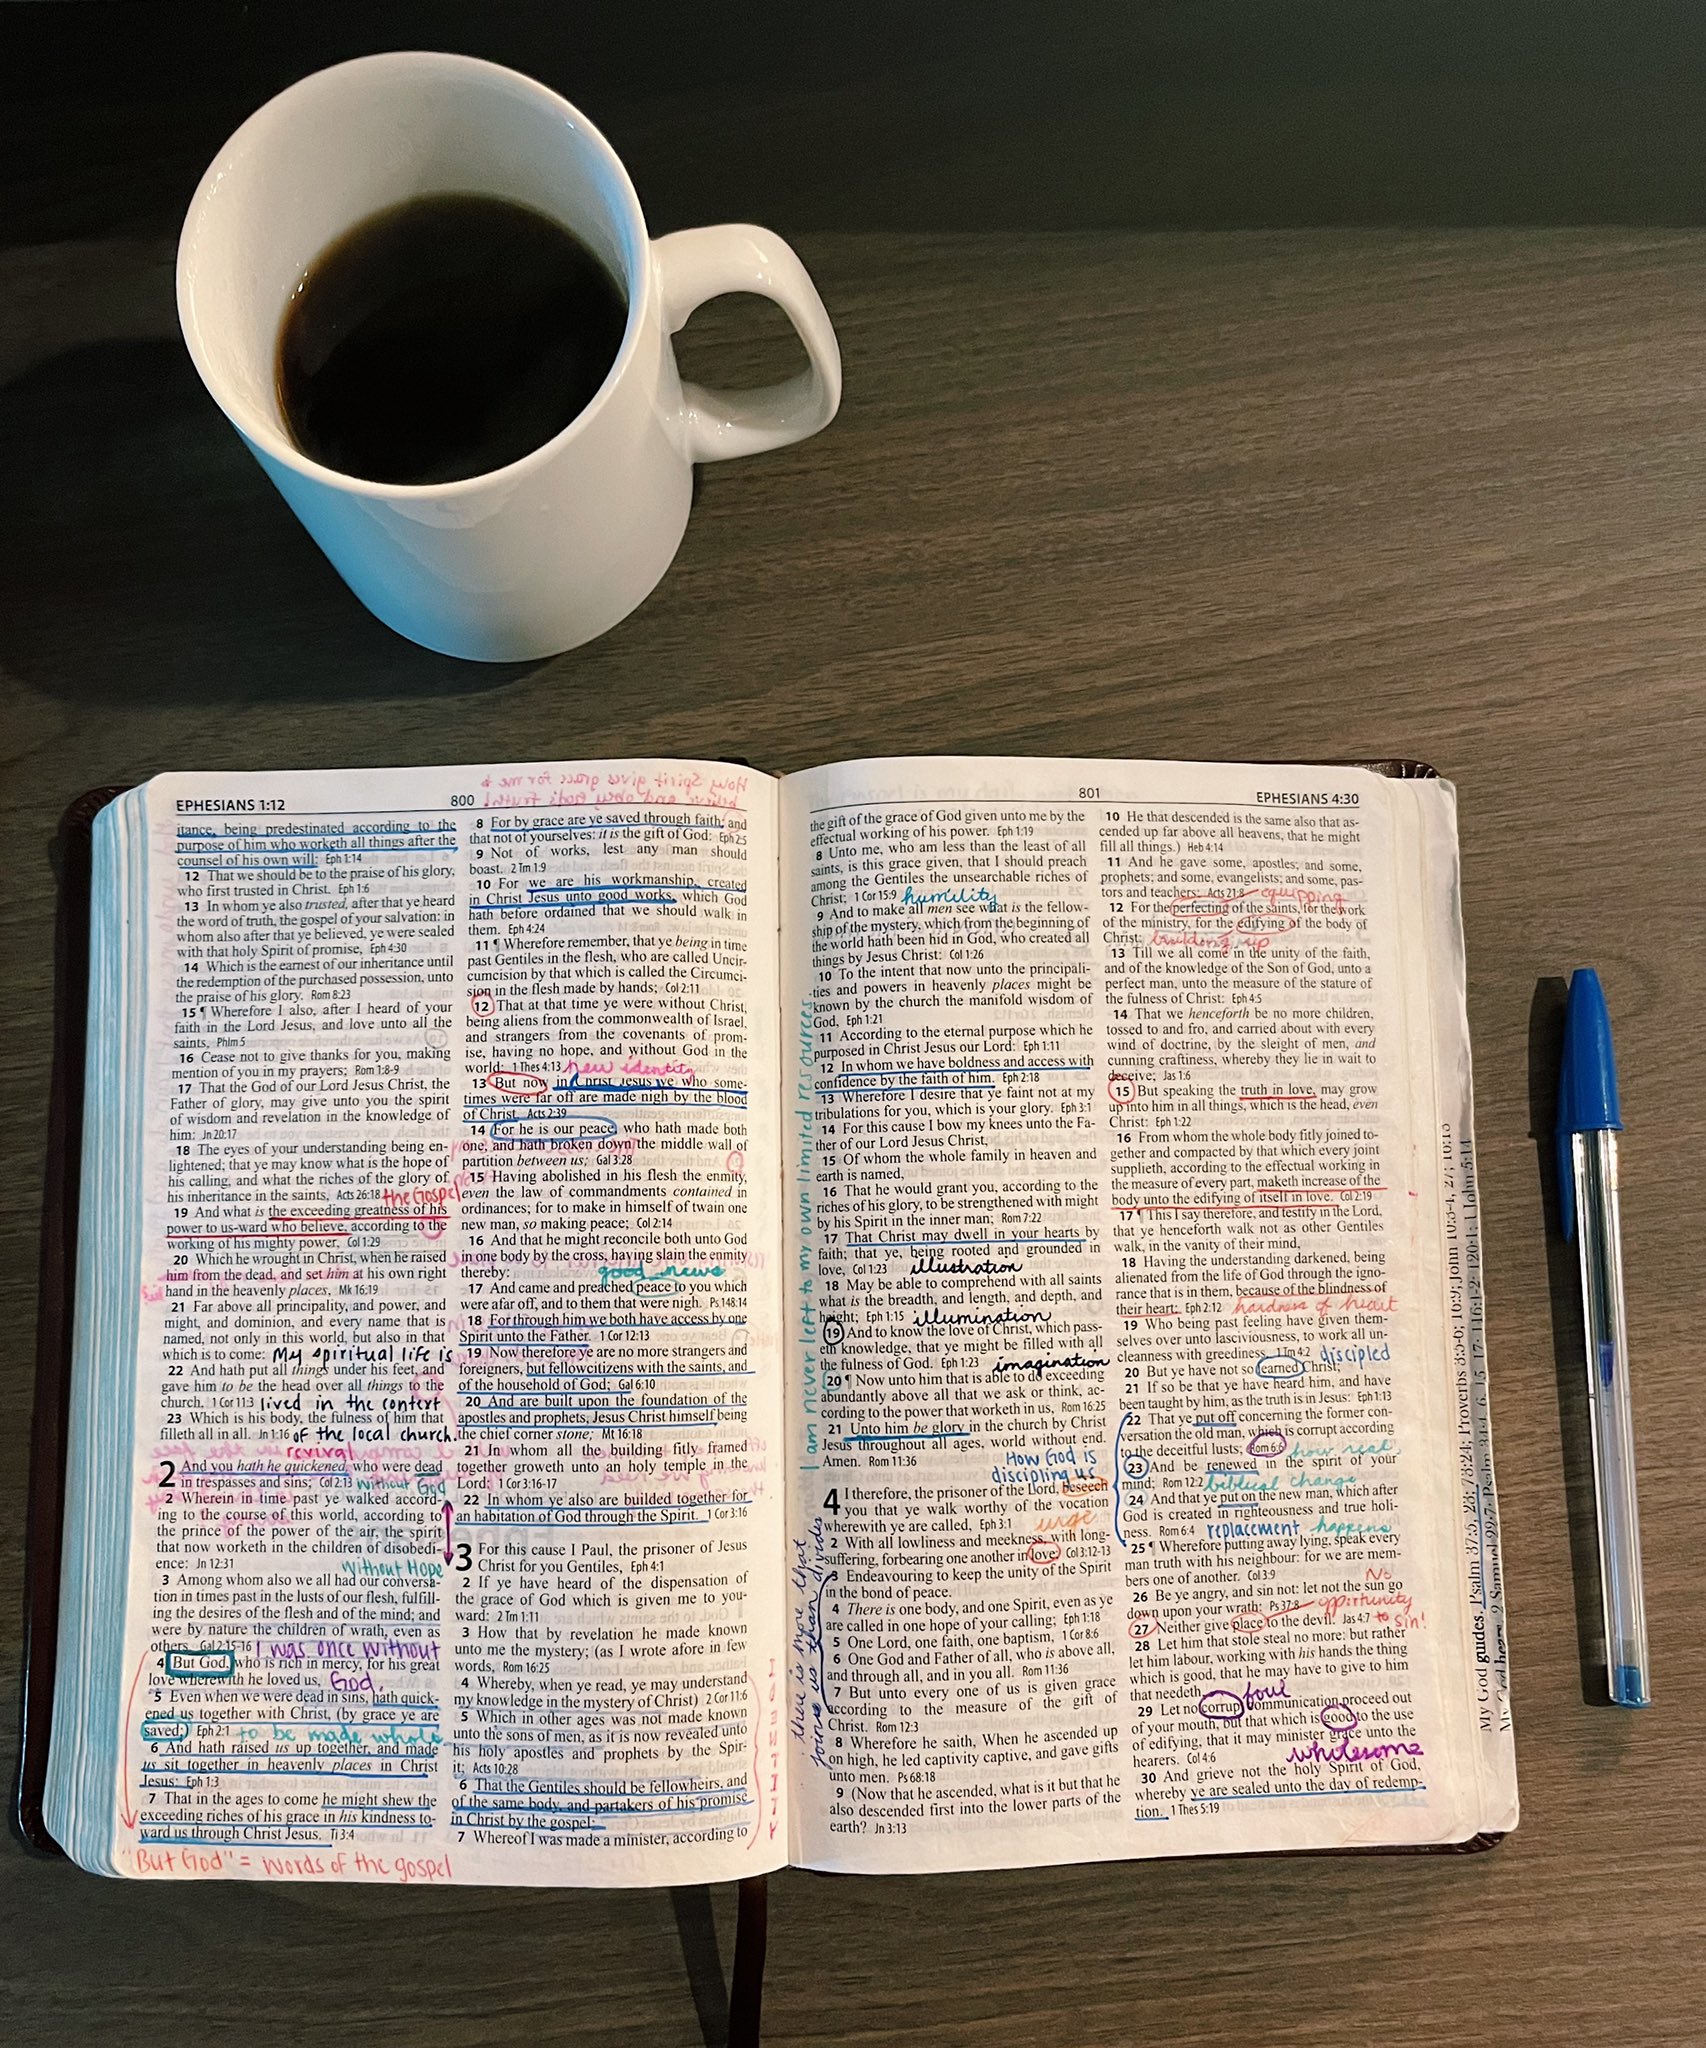 EPHESIANS 1:12
800
itance, being predestinated according to the
purpose of him who worketh all things after the
counsel of his own will: Eph 1:14
12 That we should be to the praise of his glory,
who first trusted in Christ. Eph 1:6
13 In whom ye also trusted, after that ye heard
the word of truth, the gospel of your salvation: in
whom also after that ye believed, ye were sealed
with that holy Spirit of promise, Eph 4:30
14 Which is the earnest of our inheritance until
the redemption of the purchased possession, unto
the praise of his glory. Rom 8:23
15 ¶ Wherefore I also, after I heard of your
faith in the Lord Jesus, and love unto all the
saints, Phlm 5
16 Cease not to give thanks for you, making
mention of you in my prayers; Rom 1:8-9
17 That the God of our Lord Jesus Christ, the
Father of glory, may give unto you the spirit
of wisdom and revelation in the knowledge of
him: Jn 20:17
18 The eyes of your understanding being en-
lightened; that ye may know what is the hope of
his calling, and what the riches of the glory of
his inheritance in the saints, Acts 26:18 the Gospel
19 And what is the exceeding greatness of his
power to us-ward who believe, according to the
working of his mighty power, Col 1:29
20 Which he wrought in Christ, when he raised
him from the dead, and set him at his own right
hand in the heavenly places, Mk 16:19
21 Far above all principality, and power, and
might, and dominion, and every name that is
named, not only in this world, but also in that
which is to come: My spiritual life is
22 And hath put all things under his feet, and
gave him to be the head over all things to the
church, 1 Cor 11:3 lived in the context
23 Which is his body, the fulness of him that
filleth all in all. Jn 1:16 of the local church.
revival
2 And you hath he quickened, who were dead
in trespasses and sins; Col 2:13 without God
2 Wherein in time past ye walked accord-
ing to the course of this world, according to
the prince of the power of the air, the spirit
that now worketh in the children of disobedi-
ence: Jn 12:31 without Hope
3 Among whom also we all had our conversa-
tion in times past in the lusts of our flesh, fulfill-
ing the desires of the flesh and of the mind; and
were by nature the children of wrath, even as
others. Gal 2:15-16 I was once without
4 But God, who is rich in mercy, for his great
love wherewith he loved us, God.
5 Even when we were dead in sins, hath quick-
ened us together with Christ, (by grace ye are
saved;) Eph 2:1 to be made whole
6 And hath raised us up together, and made
us sit together in heavenly places in Christ
Jesus: Eph 1:3
7 That in the ages to come he might shew the
exceeding riches of his grace in his kindness to-
ward us through Christ Jesus. Ti 3:4
"But God" = words of the gospel
8 For by grace are ye saved through faith; and
that not of yourselves: it is the gift of God: Eph 2:5
9 Not of works, lest any man should
boast. 2 Tm 1:9
10 For we are his workmanship, created
in Christ Jesus unto good works, which God
hath before ordained that we should walk in
them. Eph 4:24
11 ¶ Wherefore remember, that ye being in time
past Gentiles in the flesh, who are called Uncir-
cumcision by that which is called the Circumci-
sion in the flesh made by hands; Col 2:11
12 That at that time ye were without Christ,
being aliens from the commonwealth of Israel,
and strangers from the covenants of prom-
ise, having no hope, and without God in the
world: 1 Thes 4:13 new identity
13 But now in Christ Jesus ye who some-
times were far off are made nigh by the blood
of Christ. Acts 2:39
14 For he is our peace, who hath made both
one, and hath broken down the middle wall of
partition between us; Gal 3:28
15 Having abolished in his flesh the enmity,
even the law of commandments contained in
ordinances; for to make in himself of twain one
new man, so making peace; Col 2:14
16 And that he might reconcile both unto God
in one body by the cross, having slain the enmity
thereby: good news
17 And came and preached peace to you which
were afar off, and to them that were nigh. Ps 148:14
18 For through him we both have access by one
Spirit unto the Father. 1 Cor 12:13
19 Now therefore ye are no more strangers and
foreigners, but fellowcitizens with the saints, and
of the household of God; Gal 6:10
20 And are built upon the foundation of the
apostles and prophets, Jesus Christ himself being
the chief corner stone; Mt 16:18
21 In whom all the building fitly framed
together groweth unto an holy temple in the
Lord: 1 Cor 3:16-17
22 In whom ye also are builded together for
an habitation of God through the Spirit. 1 Cor 3:16
3 For this cause I Paul, the prisoner of Jesus
Christ for you Gentiles, Eph 4:1
2 If ye have heard of the dispensation of
the grace of God which is given me to you-
ward: 2 Tm 1:11
3 How that by revelation he made known
unto me the mystery; (as I wrote afore in few
words, Rom 16:25
4 Whereby, when ye read, ye may understand
my knowledge in the mystery of Christ) 2 Cor 11:6
5 Which in other ages was not made known
unto the sons of men, as it is now revealed unto
his holy apostles and prophets by the Spir-
it; Acts 10:28
6 That the Gentiles should be fellowheirs, and
of the same body, and partakers of his promise
in Christ by the gospel:
7 Whereof I was made a minister, according to
IDENTITY
801
EPHESIANS 4:30
the gift of the grace of God given unto me by the
effectual working of his power. Eph 1:19
8 Unto me, who am less than the least of all
saints, is this grace given, that I should preach
among the Gentiles the unsearchable riches of
Christ; 1 Cor 15:9 humility
9 And to make all men see what is the fellow-
ship of the mystery, which from the beginning of
the world hath been hid in God, who created all
things by Jesus Christ: Col 1:26
10 To the intent that now unto the principali-
ties and powers in heavenly places might be
known by the church the manifold wisdom of
God, Eph 1:21
11 According to the eternal purpose which he
purposed in Christ Jesus our Lord: Eph 1:11
12 In whom we have boldness and access with
confidence by the faith of him. Eph 2:18
13 Wherefore I desire that ye faint not at my
tribulations for you, which is your glory. Eph 3:1
14 For this cause I bow my knees unto the Fa-
ther of our Lord Jesus Christ,
15 Of whom the whole family in heaven and
earth is named,
16 That he would grant you, according to the
riches of his glory, to be strengthened with might
by his Spirit in the inner man; Rom 7:22
17 That Christ may dwell in your hearts by
faith; that ye, being rooted and grounded in
love, Col 1:23 illustration
18 May be able to comprehend with all saints
what is the breadth, and length, and depth, and
height; Eph 1:15 illumination
19 And to know the love of Christ, which pass-
eth knowledge, that ye might be filled with all
the fulness of God. Eph 1:23 imagination
20 ¶ Now unto him that is able to do exceeding
abundantly above all that we ask or think, ac-
cording to the power that worketh in us, Rom 16:25
21 Unto him be glory in the church by Christ
Jesus throughout all ages, world without end.
Amen. Rom 11:36
How God is
discipling us
4 I therefore, the prisoner of the Lord, beseech
you that ye walk worthy of the vocation
wherewith ye are called, Eph 3:1 urge
2 With all lowliness and meekness, with long-
suffering, forbearing one another in love; Col 3:12-13
3 Endeavouring to keep the unity of the Spirit
in the bond of peace.
4 There is one body, and one Spirit, even as ye
are called in one hope of your calling; Eph 1:18
5 One Lord, one faith, one baptism, 1 Cor 8:6
6 One God and Father of all, who is above all,
and through all, and in you all. Rom 11:36
7 But unto every one of us is given grace
according to the measure of the gift of
Christ. Rom 12:3
8 Wherefore he saith, When he ascended up
on high, he led captivity captive, and gave gifts
unto men. Ps 68:18
9 (Now that he ascended, what is it but that he
also descended first into the lower parts of the
earth? Jn 3:13
I am never left to my own limited resources.
there is more that
joins us than divides
10 He that descended is the same also that as-
cended up far above all heavens, that he might
fill all things.) Heb 4:14
11 And he gave some, apostles; and some,
prophets; and some, evangelists; and some, pas-
tors and teachers; Acts 21:8 equipping
12 For the perfecting of the saints, for the work
of the ministry, for the edifying of the body of
Christ: building up
13 Till we all come in the unity of the faith,
and of the knowledge of the Son of God, unto a
perfect man, unto the measure of the stature of
the fulness of Christ: Eph 4:5
14 That we henceforth be no more children,
tossed to and fro, and carried about with every
wind of doctrine, by the sleight of men, and
cunning craftiness, whereby they lie in wait to
deceive; Jas 1:6
15 But speaking the truth in love, may grow
up into him in all things, which is the head, even
Christ: Eph 1:22
16 From whom the whole body fitly joined to-
gether and compacted by that which every joint
supplieth, according to the effectual working in
the measure of every part, maketh increase of the
body unto the edifying of itself in love. Col 2:19
17 ¶ This I say therefore, and testify in the Lord,
that ye henceforth walk not as other Gentiles
walk, in the vanity of their mind,
18 Having the understanding darkened, being
alienated from the life of God through the igno-
rance that is in them, because of the blindness of
their heart: Eph 2:12 hardness of heart
19 Who being past feeling have given them-
selves over unto lasciviousness, to work all un-
cleanness with greediness. 1 Tm 4:2 discipled
20 But ye have not so learned Christ;
21 If so be that ye have heard him, and have
been taught by him, as the truth is in Jesus: Eph 1:13
22 That ye put off concerning the former con-
versation the old man, which is corrupt according
to the deceitful lusts; Rom 6:6 how real
23 And be renewed in the spirit of your
mind; Rom 12:2 biblical change
24 And that ye put on the new man, which after
God is created in righteousness and true holi-
ness. Rom 6:4 replacement happens
25 ¶ Wherefore putting away lying, speak every
man truth with his neighbour: for we are mem-
bers one of another. Col 3:9
26 Be ye angry, and sin not: let not the sun go
down upon your wrath: Ps 37:8
No
opportunity
to sin!
27 Neither give place to the devil. Jas 4:7
28 Let him that stole steal no more: but rather
let him labour, working with his hands the thing
which is good, that he may have to give to him
that needeth. foul
29 Let no corrupt communication proceed out
of your mouth, but that which is good to the use
of edifying, that it may minister grace unto the
hearers. Col 4:6 wholesome
30 And grieve not the holy Spirit of God,
whereby ye are sealed unto the day of redemp-
tion. 1 Thes 5:19
My God guides. Psalm 37:5, 23; 73:24; Proverbs 3:5-6; 16:9; John 10:3-4, 27; 16:13